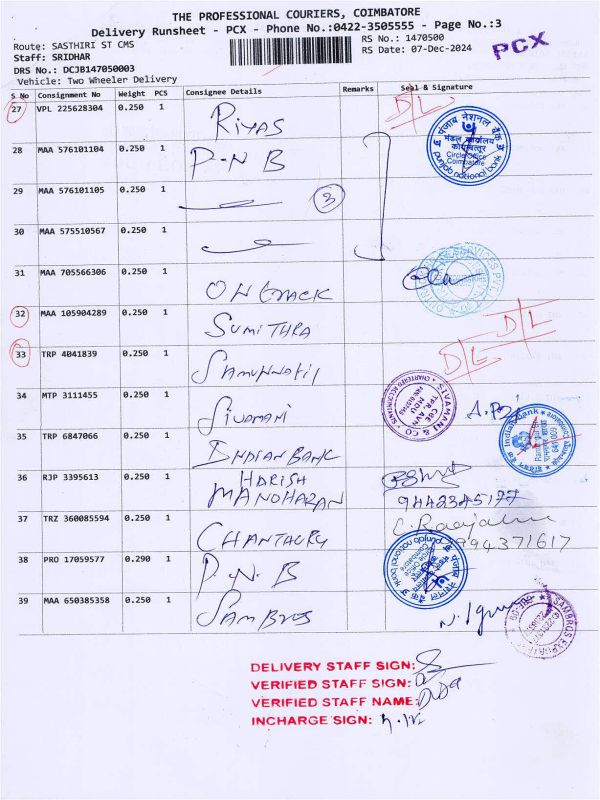 THE PROFESSIONAL COURIERS, COIMBATORE
Delivery Runsheet - PCX - Phone No.:0422-3505555 - Page No.:3
Route: SASTHIRI ST CMS
RS No.: 1470500
PCX
Staff: SRIDHAR
RS Date: 07-Dec-2024
DRS No.: DCJB147050003
Vehicle: Two Wheeler Delivery
S No Consignment No Weight PCS Consignee Details Remarks Seal & Signature
27 VPL 225628304 0.250 1 RIYAS D/L
28 MAA 576101104 0.250 1 P.N.B
पंजाब नैशनल बैंक
मंडल कार्यालय
कोयम्बत्तूर
Circle Office
Coimbatore
punjab national bank
29 MAA 576101105 0.250 1 3
30 MAA 575510567 0.250 1
31 MAA 705566306 0.250 1 ON TRACK
32 MAA 105904289 0.250 1 SUMITHRA D/L
33 TRP 4041839 0.250 1 D/L
34 MTP 3111455 0.250 1 SIVAMANI
SIVAMANI & CO
CHARTERED ACCOUNTANTS
35 TRP 6847066 0.250 1 INDIAN BANK
Indian Bank
641 009
36 RJP 3395613 0.250 1 HARISH MANOHARAN
9442345177
37 TRZ 360085594 0.250 1 CHANTHURY
994371617
38 PRO 17059577 0.290 1 P.N.B
punjab national bank
39 MAA 650385358 0.250 1 SAMBROS
DELIVERY STAFF SIGN:
VERIFIED STAFF SIGN:
VERIFIED STAFF NAME:
INCHARGE SIGN: